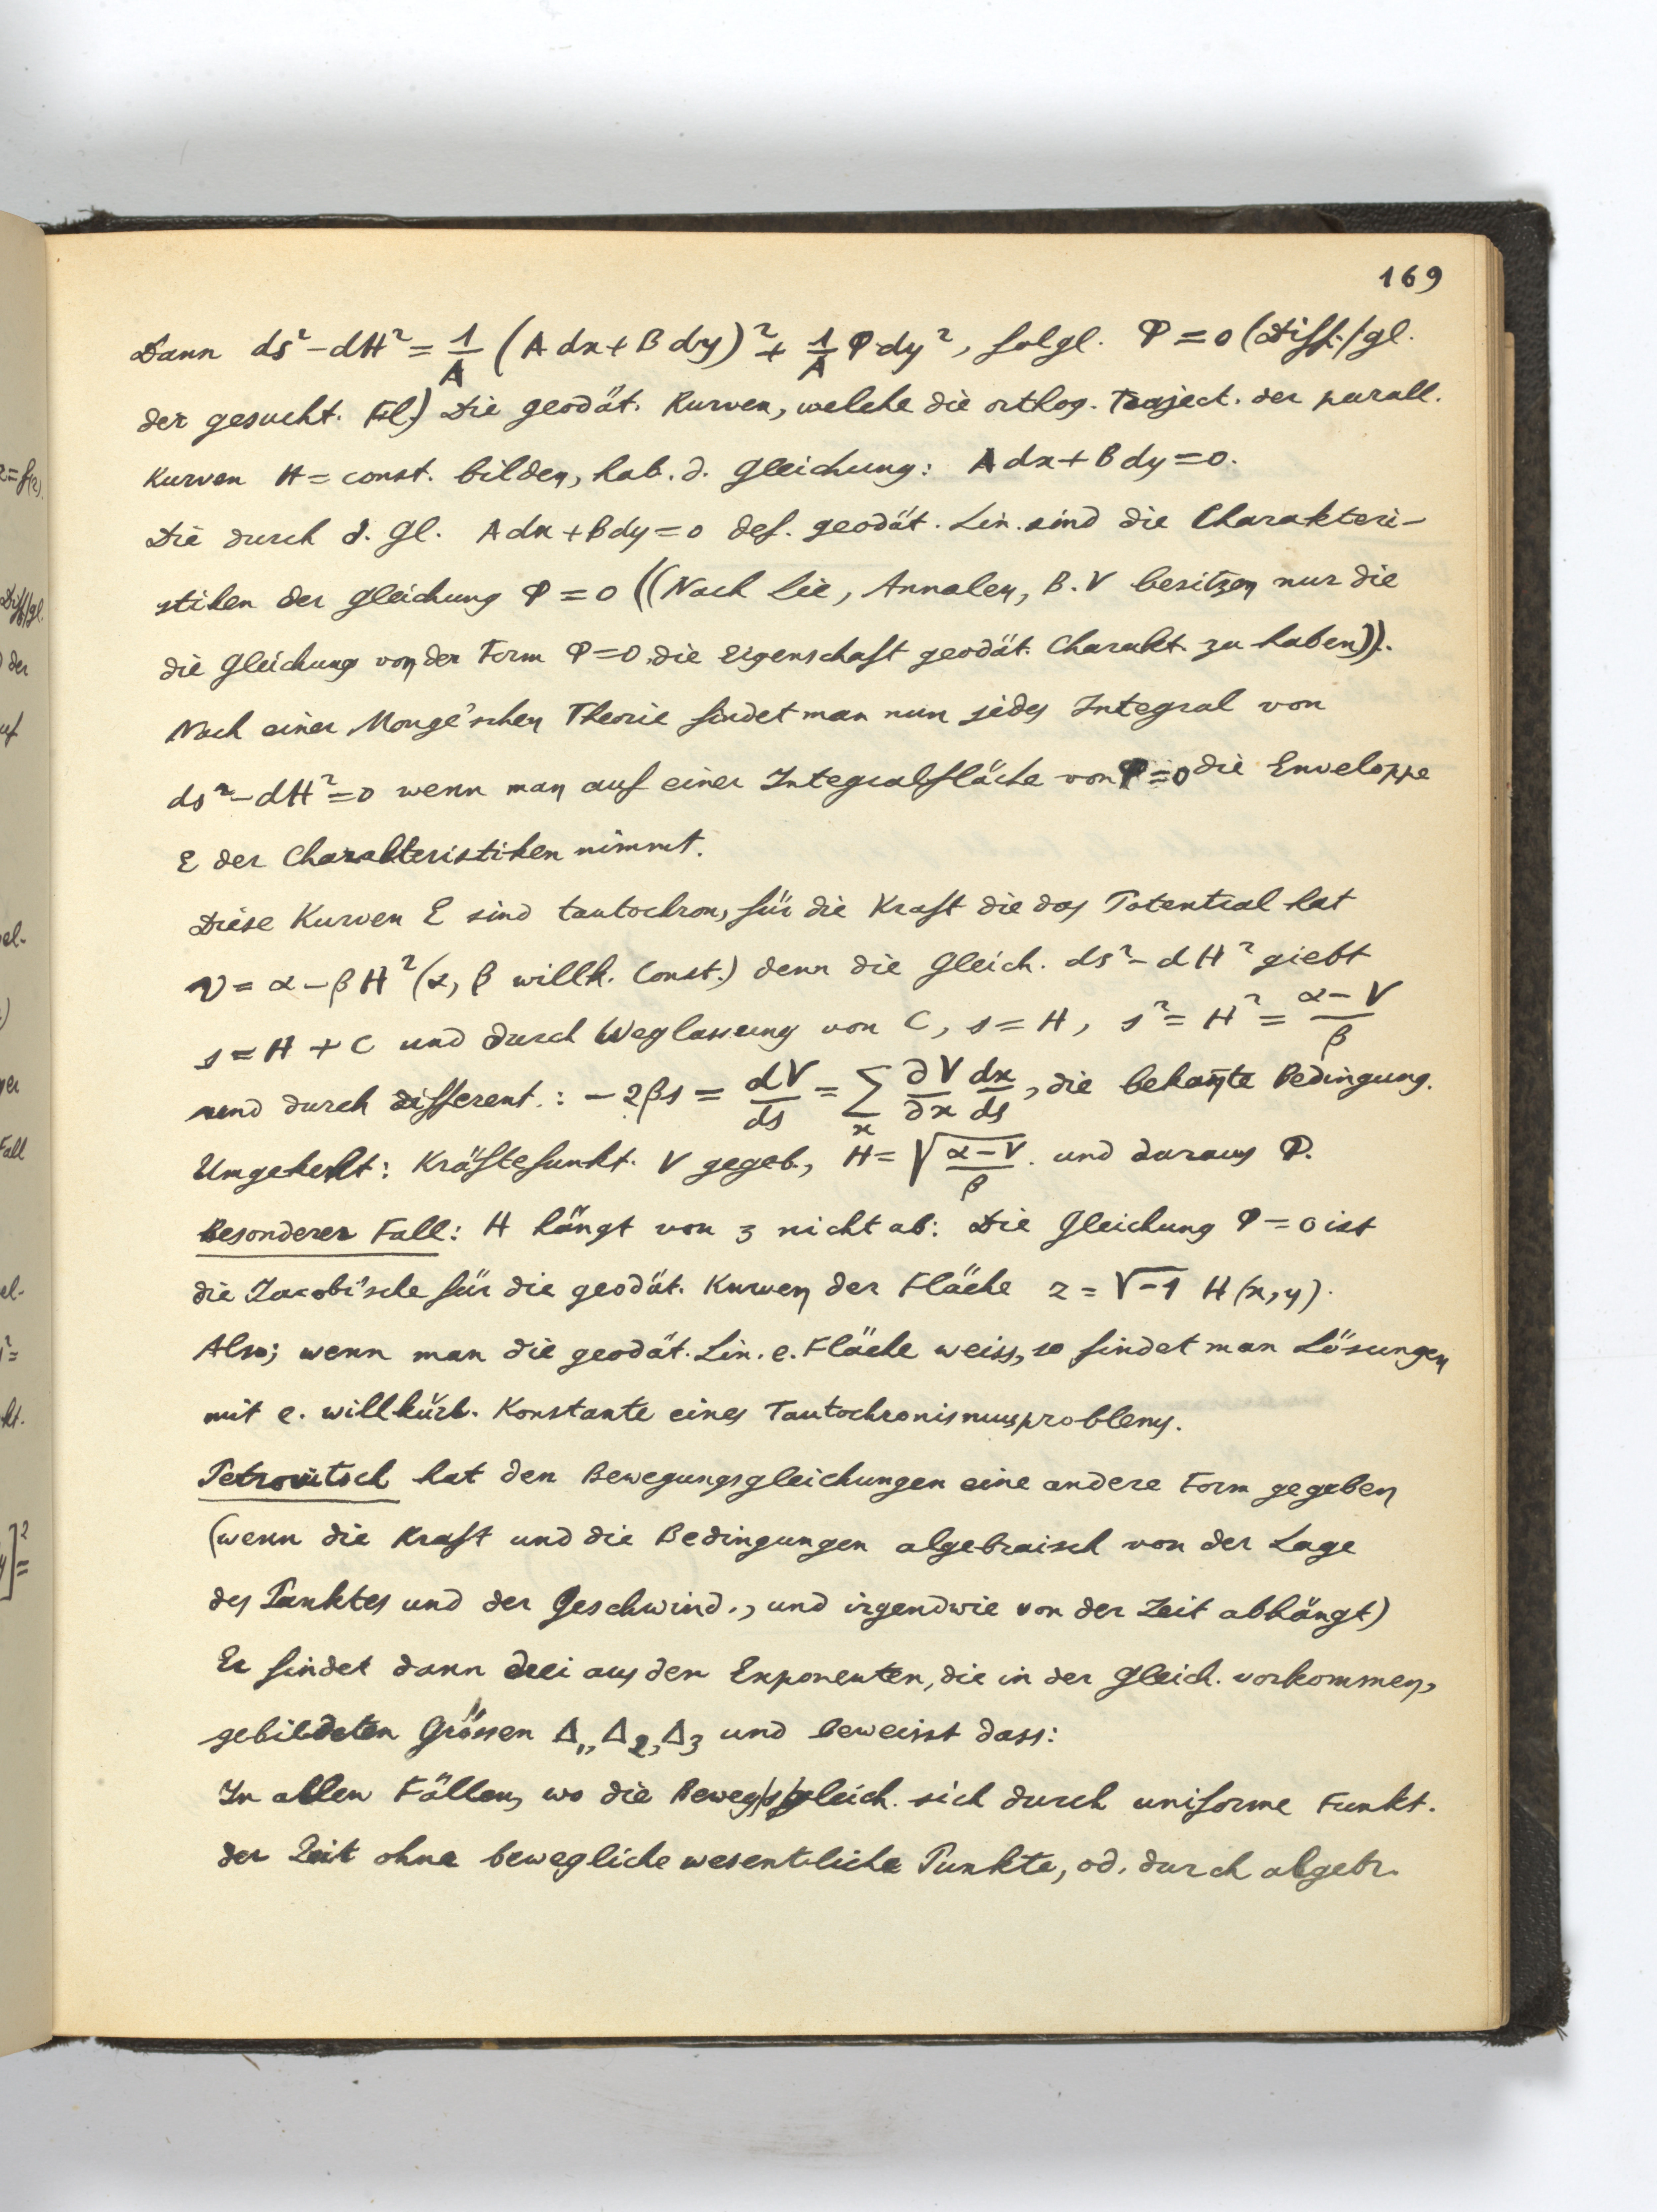 169
Dann ds² - dH² = 1/A (A dx + B dy)² + 1/A Φ dy², folgl. Φ = 0 (Diff./gl.
der gesucht. Fl.) Die geodät. Kurven, welche die orthog. Traject. der parall.
Kurven H = const. bilden, hab. d. Gleichung: A dx + B dy = 0.
Die durch d. Gl. A dx + B dy = 0 def. geodät. Lin. sind die Charakteri-
stiken der Gleichung Φ = 0 ((Nach Lie, Annalen, B. V besitzen nur die
die Gleichung von der Form Φ = 0 die Eigenschaft geodät. Charakt. zu haben)).
Nach einer Monge'schen Theorie findet man nun jedes Integral von
ds² - dH² = 0 wenn man auf einer Integralfläche von Φ = 0 die Enveloppe
E der Charakteristiken nimmt.
Diese Kurven E sind tautochron, für die Kraft die das Potential hat
V = α - βH² (α, β willk. Const.) denn die Gleich. ds² - dH² giebt
s = H + C und durch Weglassung von C, s = H, s² = H² = (α - V)/β
und durch different.: - 2βs = dV/ds = Σ_x ∂V/∂x dx/ds, die bekan̄te Bedingung.
Umgekehlt: Kräftefunkt. V gegeb., H = √(α - V)/β. und daraus Φ.
Besonderer Fall: H hängt von z nicht ab: Die Gleichung Φ = 0 ist
die Jacobi'sche für die geodät. Kurven der Fläche z = √-1 H(x, y).
Also; wenn man die geodät. Lin. e. Fläche weiss, so findet man Lösungen
mit e. willkürl. Konstante eines Tautochronismusproblems.
Petrovitsch hat den Bewegungsgleichungen eine andere Form gegeben
(wenn die Kraft und die Bedingungen algebraisch von der Lage
des Punktes und der Geschwind., und irgendwie von der Zeit abhängt)
Er findet dann drei aus den Exponenten, die in der Gleich. vorkommen,
gebildeten Grössen Δ₁, Δ₂, Δ₃ und beweisst dass:
In allen Fällen, wo die Beweg/s/gleich. sich durch uniforme Funkt.
der Zeit ohne bewegliche wesentliche Punkte, od. durch algebr.